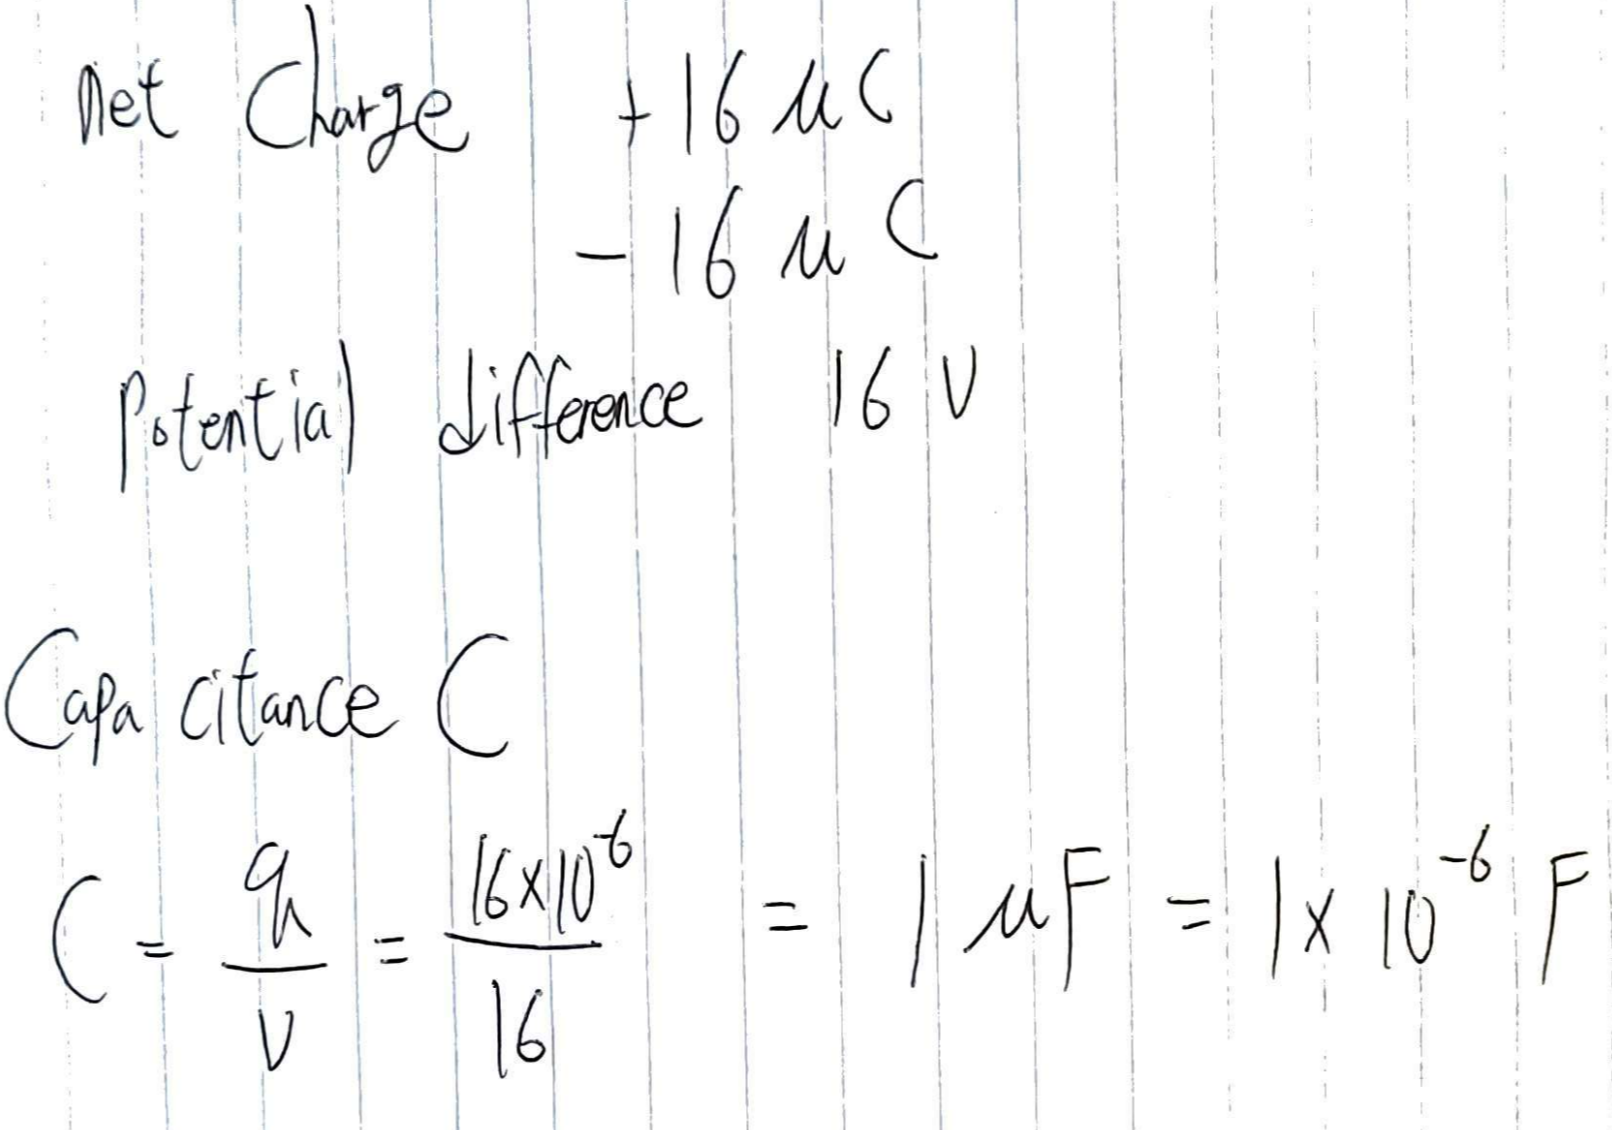 Net Charge +16 μC
-16 μC
Potential difference 16 V
Capacitance C
C = q/V = 16×10⁻⁶/16 = 1 μF = 1 × 10⁻⁶ F